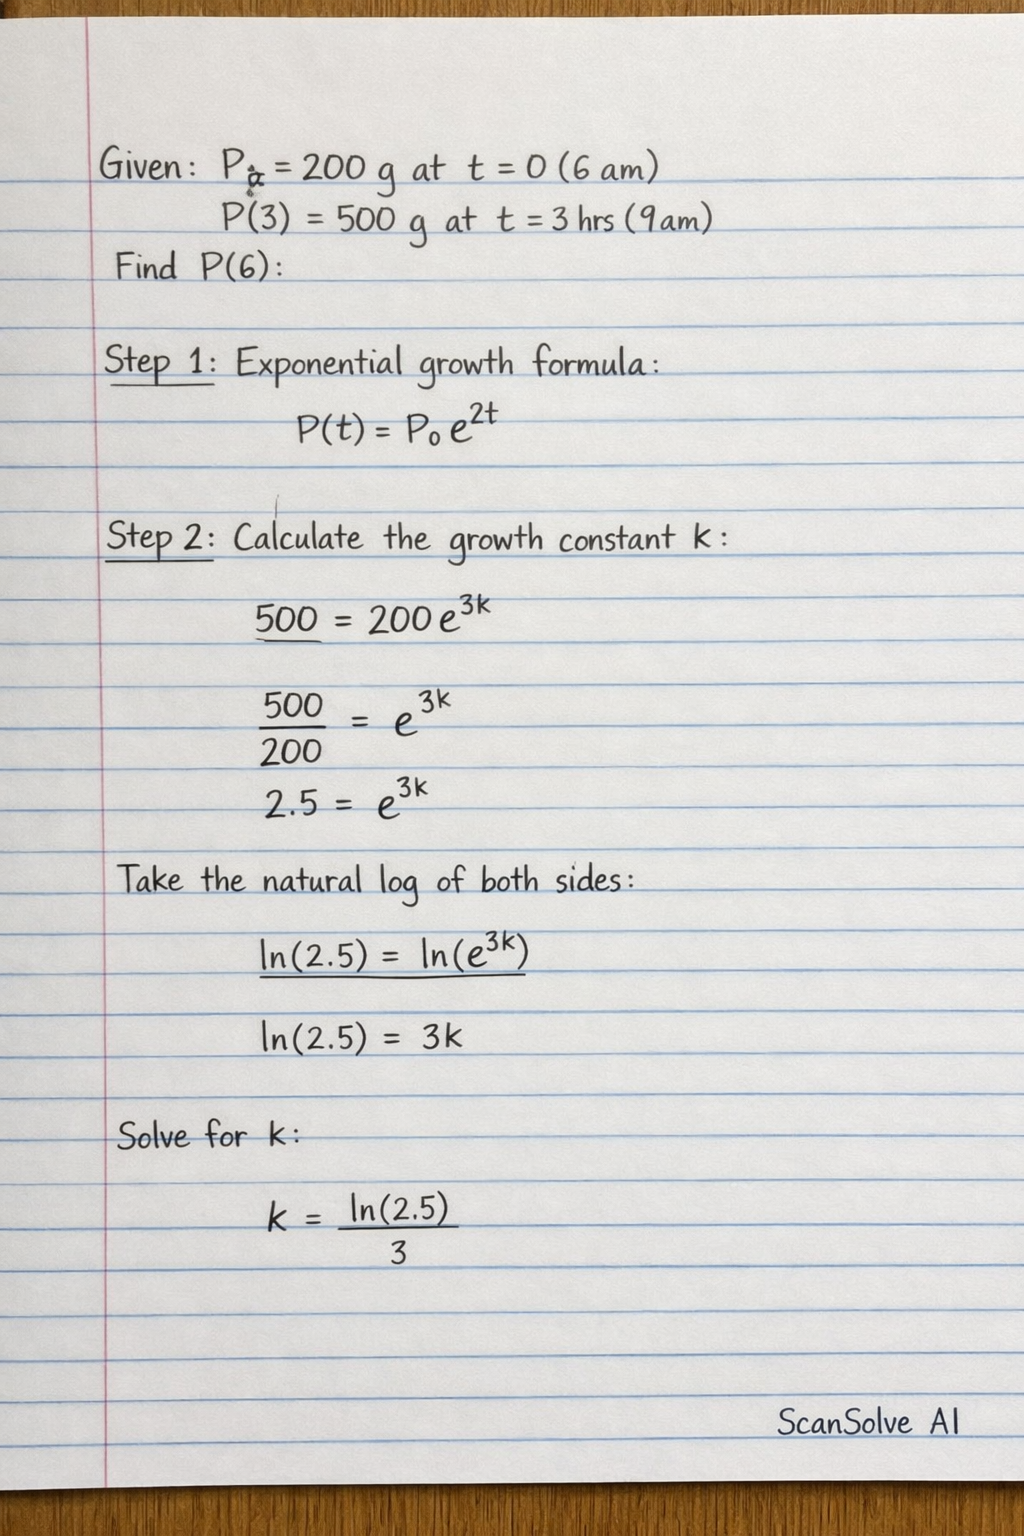 Given: P = 200 g at t = 0 (6 am)
P(3) = 500 g at t = 3 hrs (9am)
Find P(6):
Step 1: Exponential growth formula:
P(t) = P₀ e^2t
Step 2: Calculate the growth constant k:
500 = 200 e^3k
500
200
= e^3k
2.5 = e^3k
Take the natural log of both sides:
ln(2.5) = ln(e^3k)
ln(2.5) = 3k
Solve for k:
k = ln(2.5)
3
ScanSolve AI